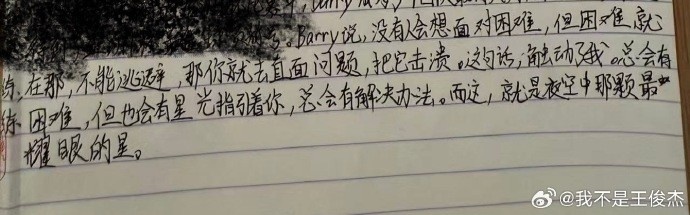 Barry说,没有人会想面对困难,但困难就
在那,不能逃避,那你就去直面问题,把它击溃。这句话,触动了我。总会有
困难,但也会有星光指引着你,总会有解决办法。而这,就是夜空中那颗最
耀眼的星。
@我不是王俊杰